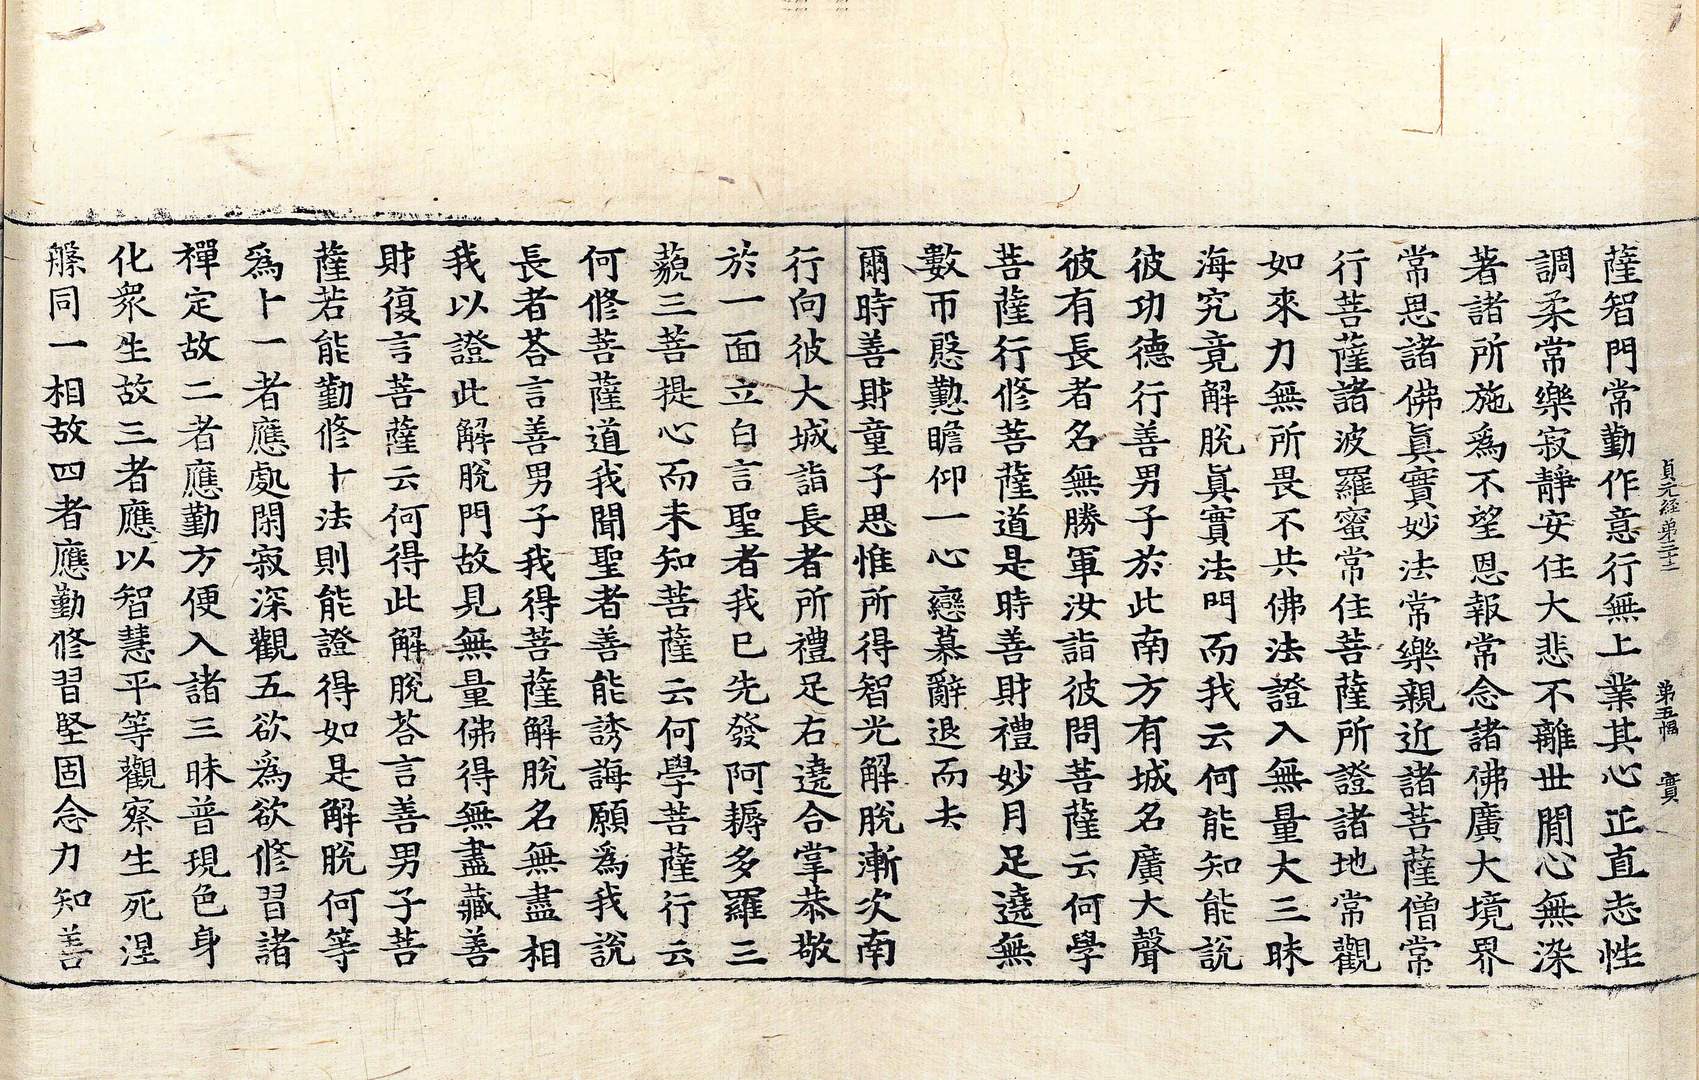 貞元経第三十二 第五幅 實
薩智門常勤作意行無上業其心正直志性
調柔常樂寂靜安住大悲不離世閒心無染
著諸所施爲不望恩報常念諸佛廣大境界
常思諸佛眞實妙法常樂親近諸菩薩僧常
行菩薩諸波羅蜜常住菩薩所證諸地常觀
如來力無所畏不共佛法證入無量大三昧
海究竟解脫眞實法門而我云何能知能說
彼功德行善男子於此南方有城名廣大聲
彼有長者名無勝軍汝詣彼問菩薩云何學
菩薩行修菩薩道是時善財禮妙月足遶無
數帀慇懃瞻仰一心戀慕辭退而去
爾時善財童子思惟所得智光解脫漸次南
行向彼大城詣長者所禮足右遶合掌恭敬
於一面立白言聖者我已先發阿耨多羅三
藐三菩提心而未知菩薩云何學菩薩行云
何修菩薩道我聞聖者善能誘誨願爲我說
長者荅言善男子我得菩薩解脫名無盡相
我以證此解脫門故見無量佛得無盡藏善
財復言菩薩云何得此解脫荅言善男子菩
薩若能勤修十法則能證得如是解脫何等
爲十一者應處閑寂深觀五欲爲欲修習諸
禪定故二者應勤方便入諸三昧普現色身
化衆生故三者應以智慧平等觀察生死涅
槃同一相故四者應勤修習堅固念力知善